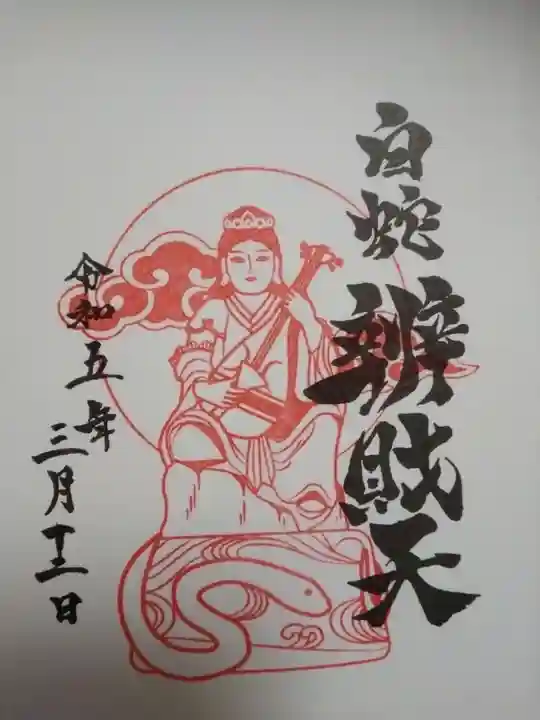 白蛇
辨財天
令和五年
三月十三日